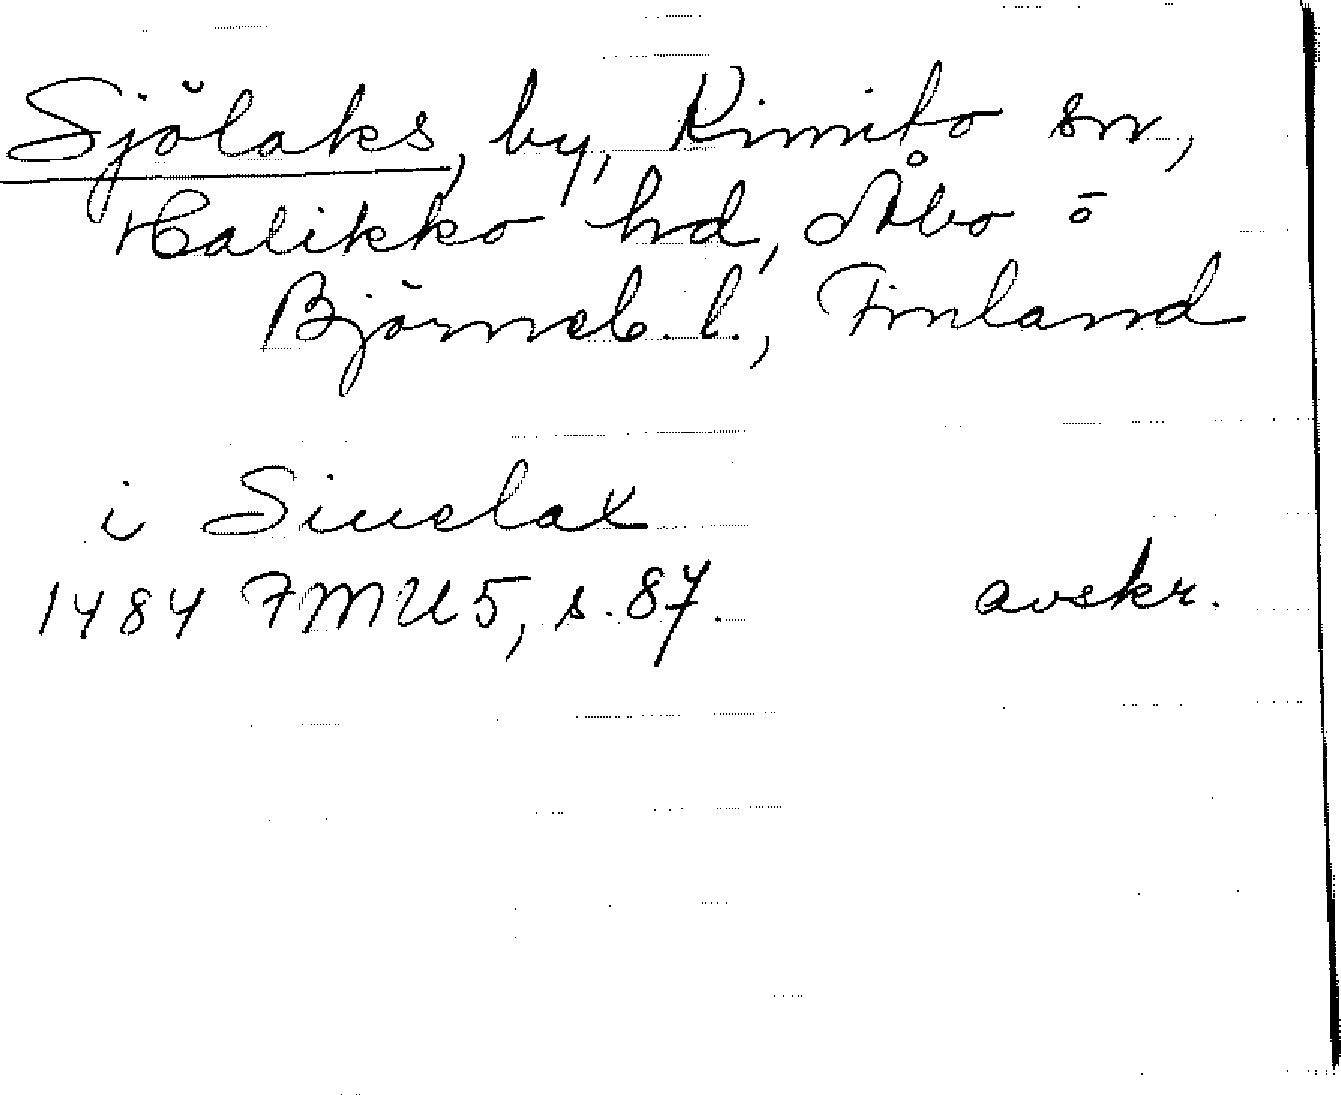 Sjölaks, by, Kimito sn,
Halikko hd, Åbo o
Björneb. l., Finland
i Siuelax
1484 FMU 5, s. 87.
avskr.